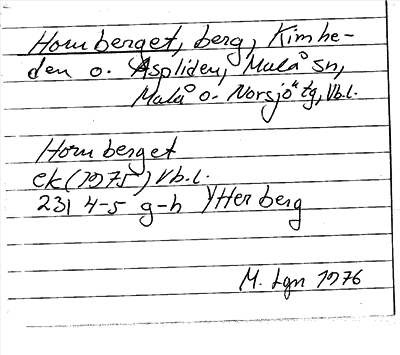 Hornberget, berg, Kimhe-
den o. Aspliden, Malå sn,
Malå o. Norsjö tg, Vb.l.
Hornberget
ek (1975) Vb.l.
231 4-5 g-h YHerberg
M. Lgn 1976